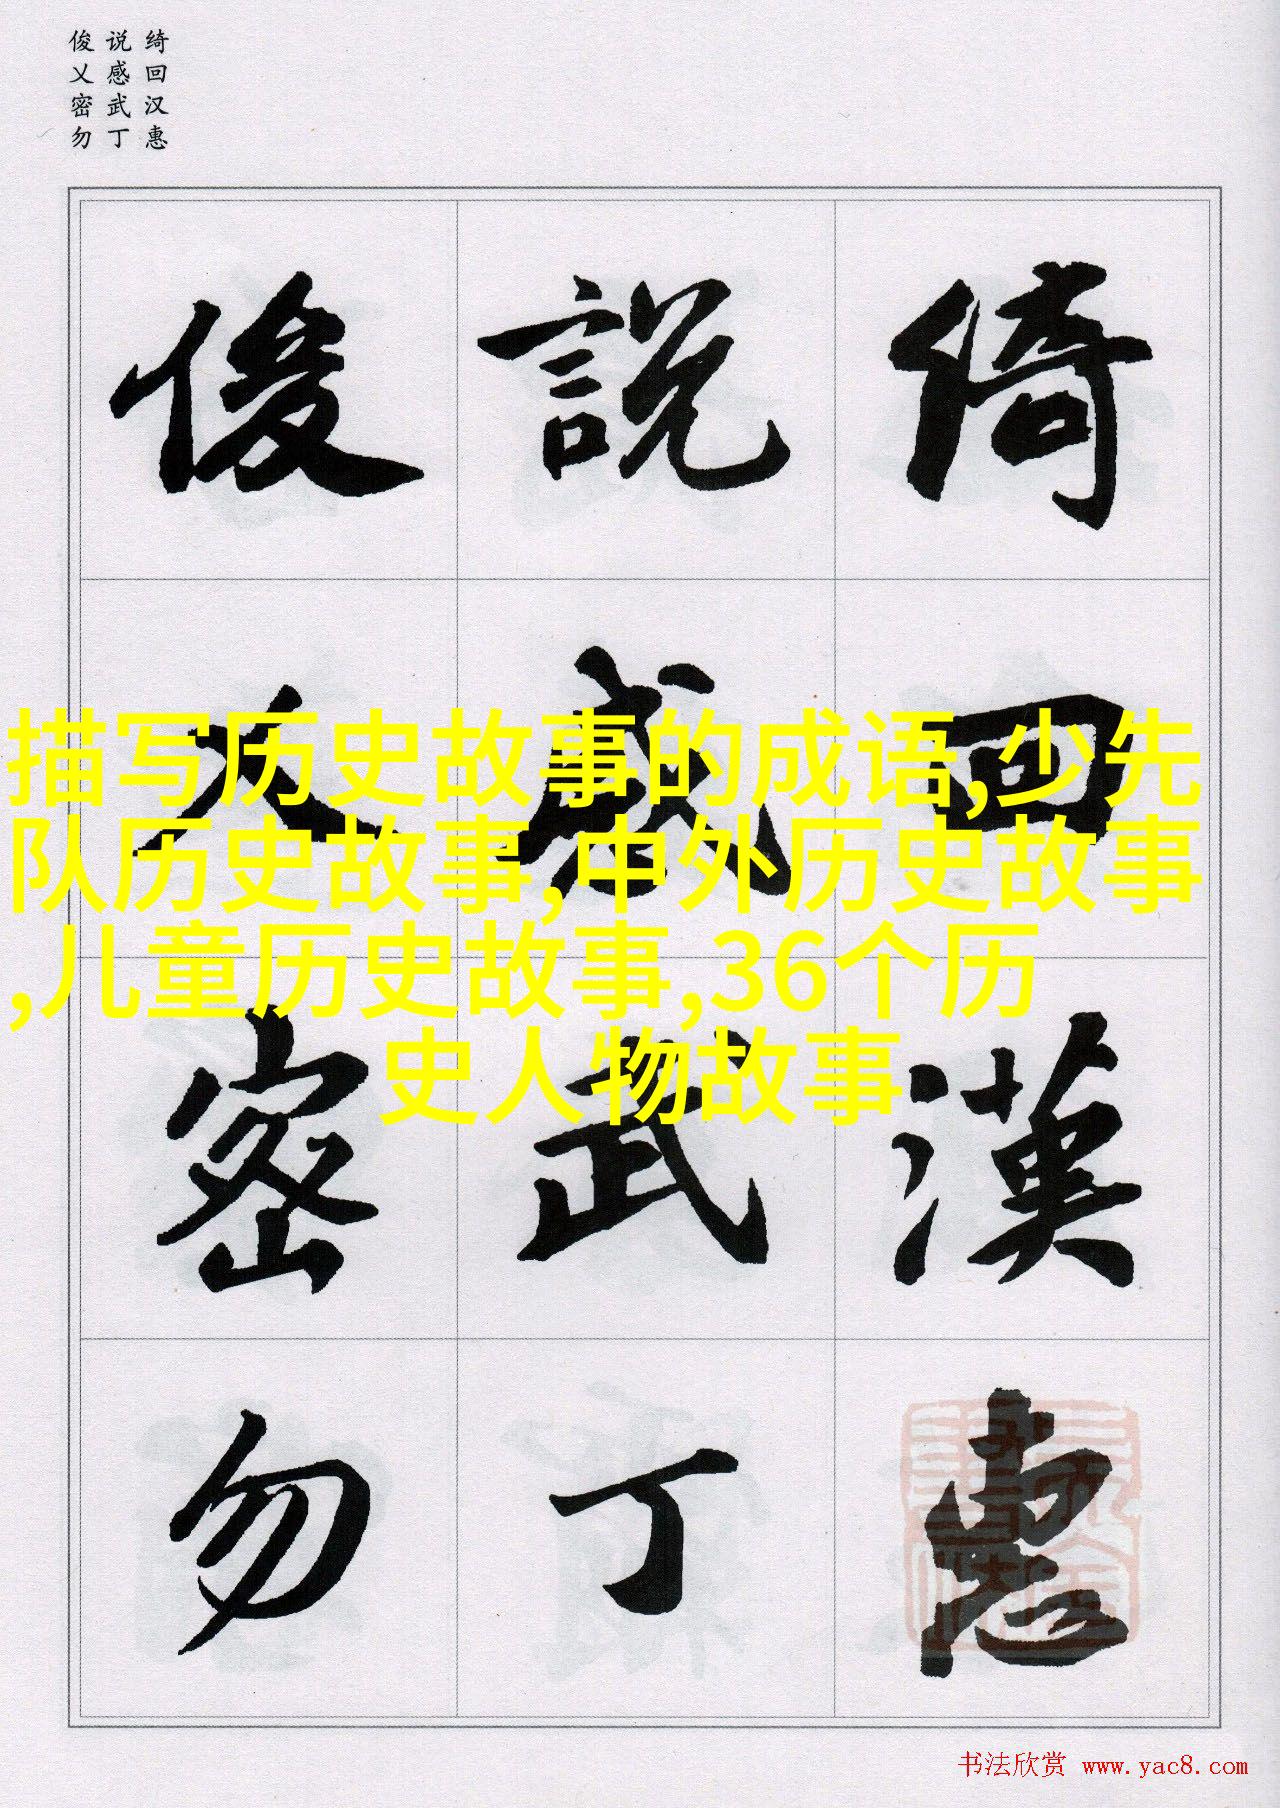 俊 说 绮
乂 感 回
密 武 汉
勿 丁 惠
俊 說 綺
乂 感 回
密 武 漢
勿 丁 惠
描写历史故事的成语,少先
队历史故事,中外历史故事
,儿童历史故事,36个历
史人物故事
书法欣赏 www.yac8.com